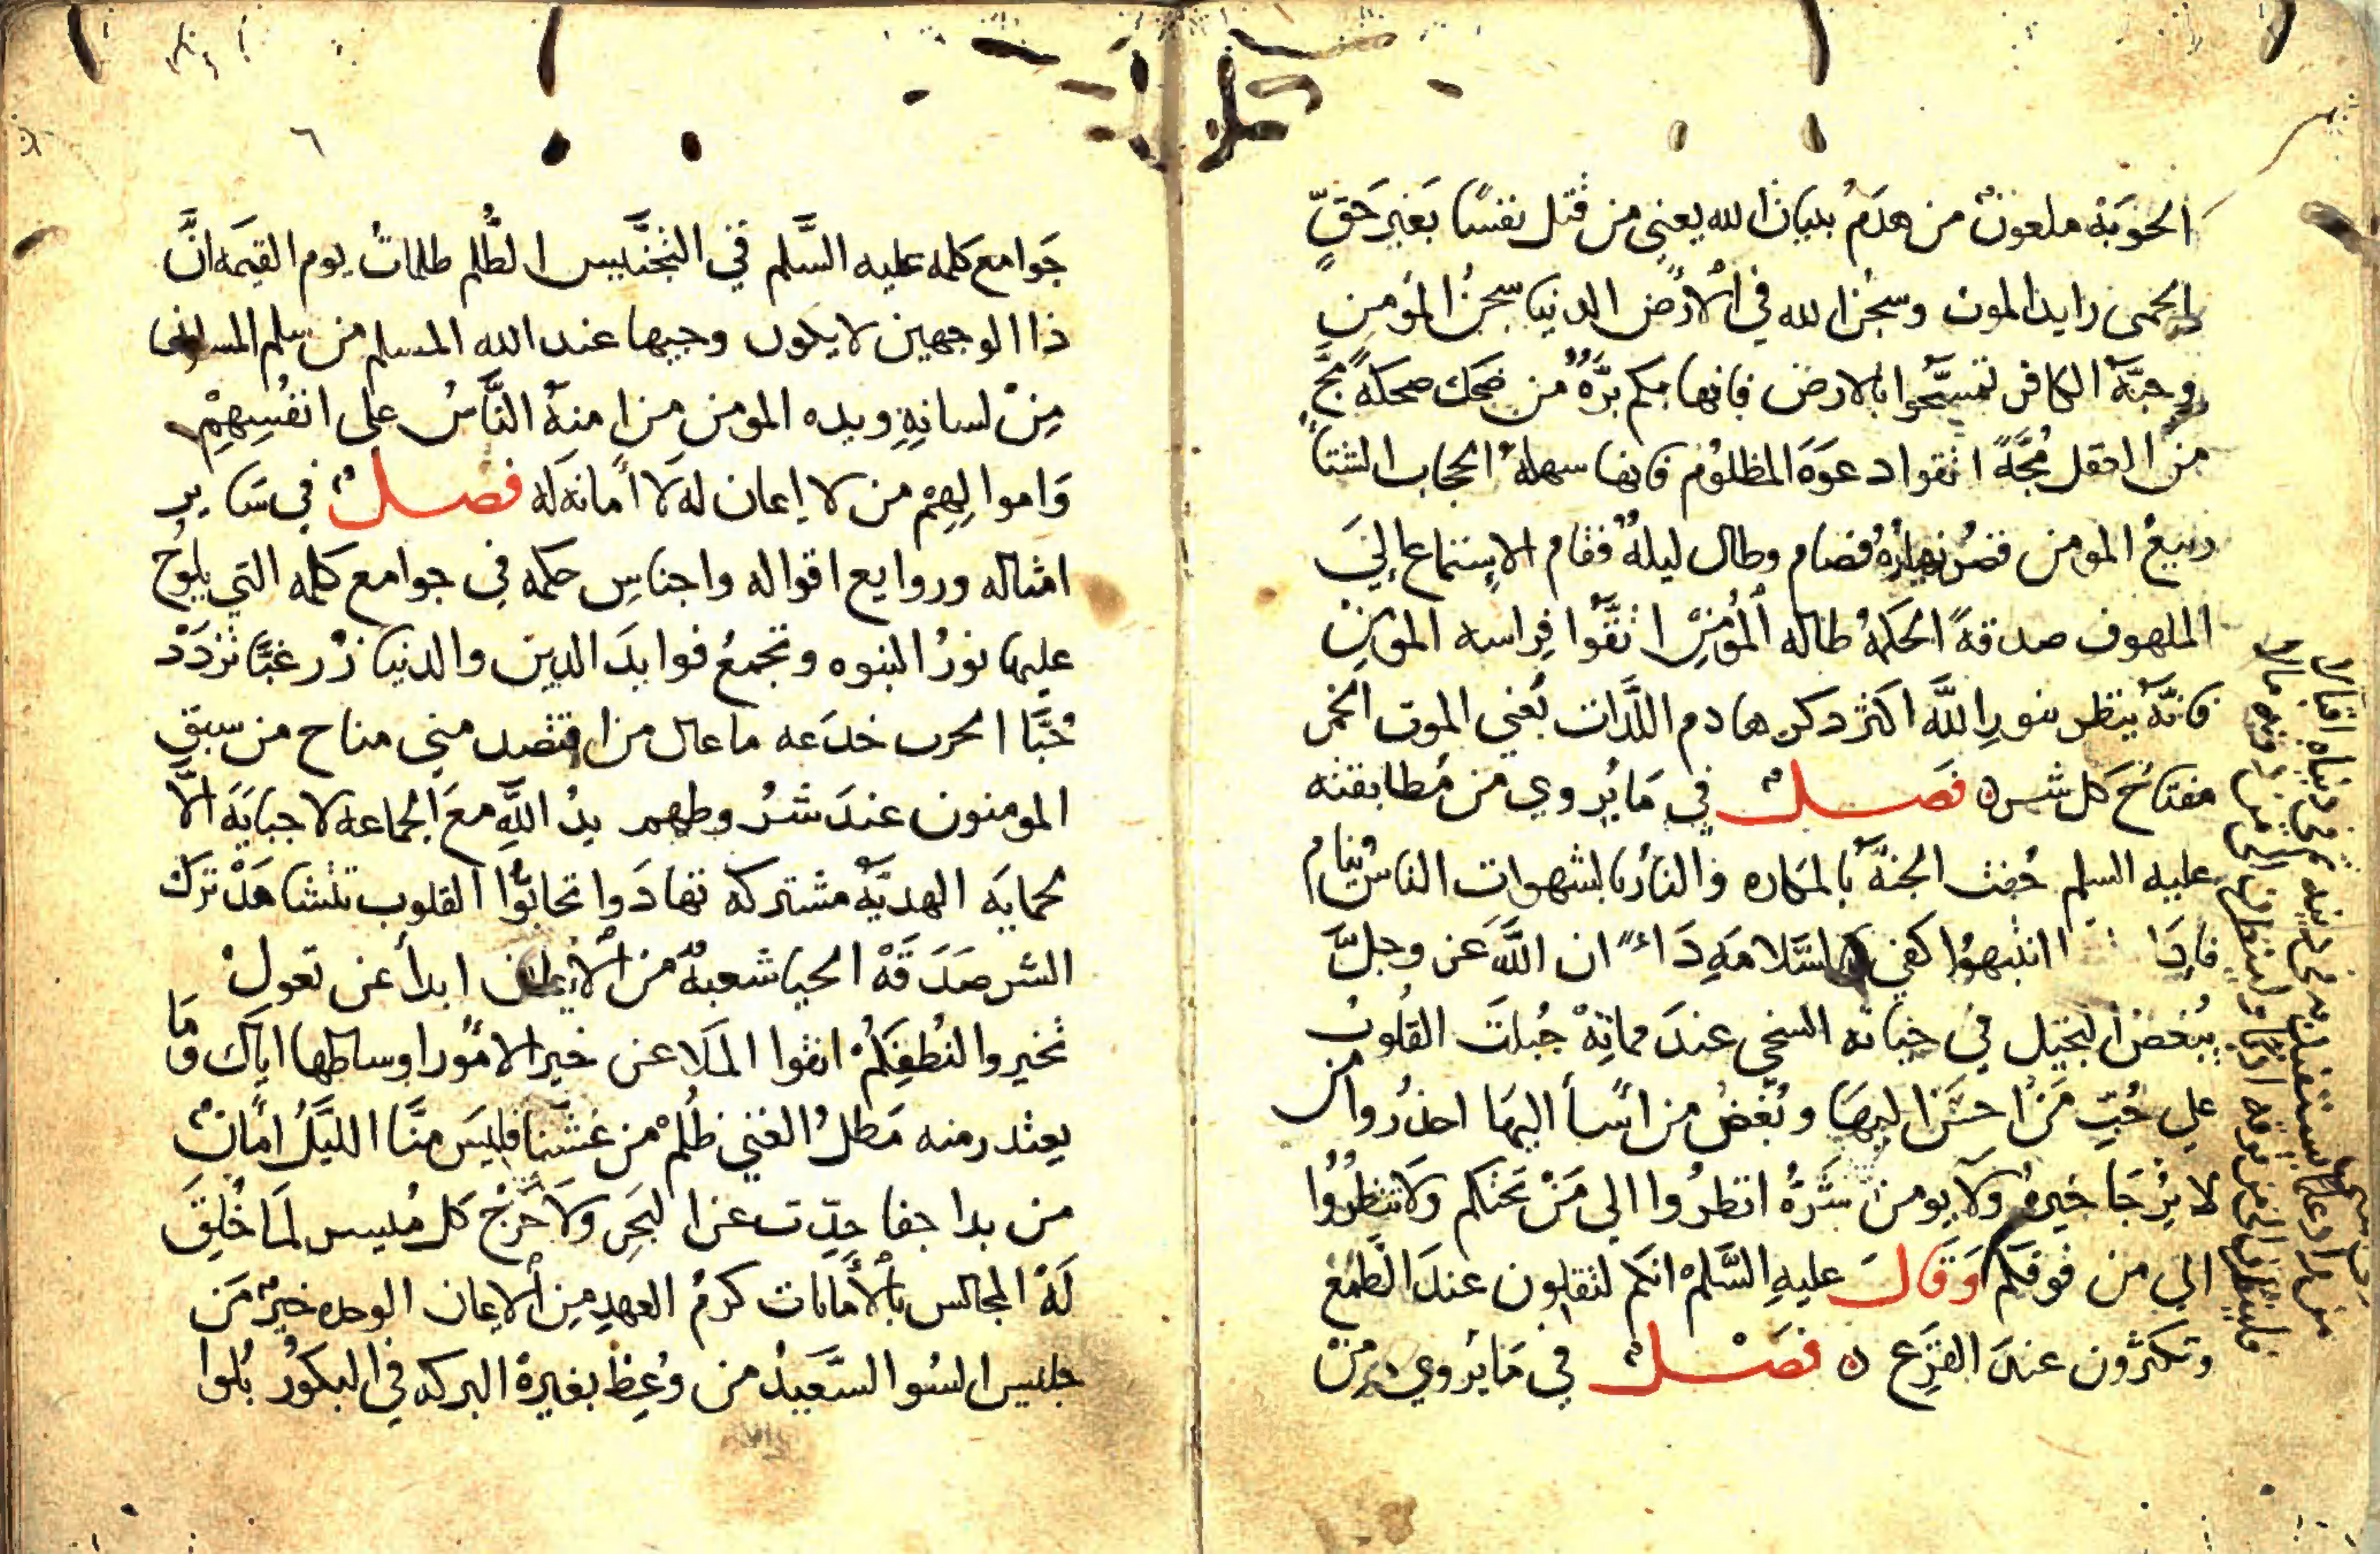 الحوبة ملعون من هدم بنيان الله يعني من قتل نفسا بغير حق
الحمى رايد الموت وسجن الله في الأرض الدنيا سجن المؤمن
وجنة الكافر تمسحوا بالارض فانها بكم برة من ضحك ضحكة مج
من العقل مجة اتقوا دعوة المظلوم فانها سهلة الحجاب الشتا
ربيع المومن قصر نهاره فصام وطال ليله فقام الاستماع الي
الملهوف صدقة الحكمة ضالة المؤمن اتقوا فراسه المومن
فانه ينظر بنور الله اكثر دكر هادم اللذات يعني الموت الخمر
مفتاح كل شر ه فصل في ما يروي من مطابقته
عليه السلم حفت الجنة بالمكاره والنار بالشهوات الناس نيام
فاذا انتبهوا كفي بالسلامة داء ان الله عز وجل
يبغض البخيل في حياته السخي عند مماته جبلت القلوب
علي حب من أحسن اليها وبغض من أسأ اليها احذروا من
لا يرجا خيره ولا يومن شره انظروا الي من تحتكم ولا تنظروا
الي من فوقكم وقال عليه السلم انكم لتقلون عند الطمع
وتكثرون عند الفزع ه فصل في ما يروي من
جوامع كلمه عليه السلم في التجنيس الظلم ظلمات يوم القيمه ان
ذا الوجهين لا يكون وجيها عند الله المسلم من سلم المسلمون
من لسانه ويده المومن من امنه الناس على انفسهم
واموالهم من لا إيمان له لا أمانه له فصل في ساير
امثاله وروايع اقواله واجناس حكمه في جوامع كلمه التي يلوح
عليها نور النبوه وتجمع فوايد الدين والدنيا زر غبا تزدد
حبا الحرب خدعه ما عال من اقتصد منى مناح من سبق
المومنون عند شروطهم يد الله مع الجماعة لا جباية الا
بحمايه الهدية مشتركه تهادوا تحابوا القلوب تتشاهد ترك
الشر صدقة الحيا شعبة من الايمان ابدأ بمن تعول
تخيروا لنطفكم اتقوا الملاعن خير الامور اوساطها اياك وما
يعتذر منه مطل الغني ظلم من غشنا فليس منا الليل امان
من بدا جفا حدث عن البحر ولا حرج كل ميسر لما خلق
له المجالس بالأمانات كرم العهد من الايمان الوحده خير من
جليس السوا السعيد من وعظ بغيره البركه في البكور بلوا